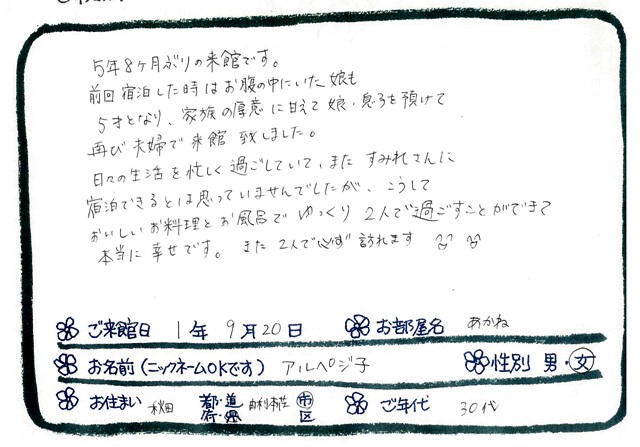 5年8ヶ月ぶりの来館です。
前回宿泊した時はお腹の中にいた娘も
5才となり、家族の厚意に甘えて娘・息子を預けて
再び夫婦で来館致しました。
日々の生活を忙しく過ごしていて、また すみれさんに
宿泊できるとは思っていませんでしたが、こうして
おいしいお料理とお風呂で ゆっくり 2人で過ごすことができて
本当に幸せです。 また 2人で必ず訪れます
ご来館日 1年 9月20日 お部屋名 あかね
お名前(ニックネームOKです) アルペジ子 性別 男・女
お住まい 秋田 都・道・府・県 由利本荘 市 区 ご年代 30代